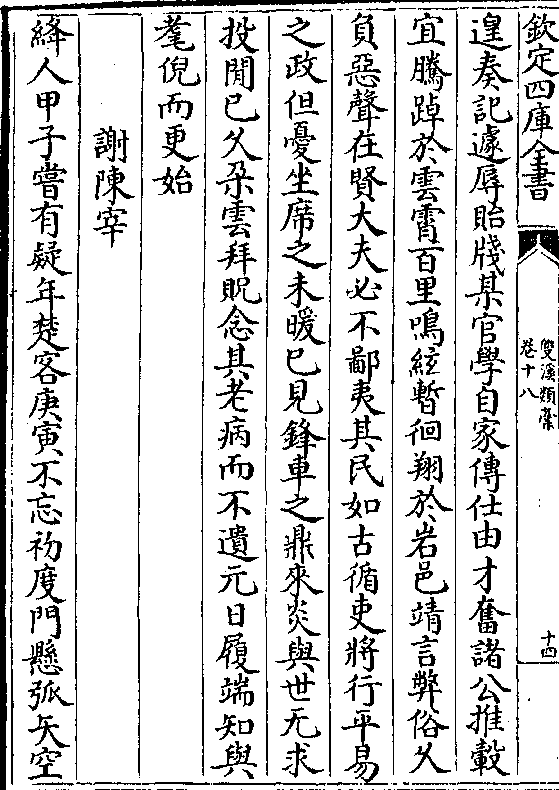 欽定四庫全書
雙溪類槀
卷十八
十四
遑奏記遽辱貽牋某官學自家傳仕由才奮諸公推轂
宜騰踔於雲霄百里鳴絃暫徊翔於岩邑靖言弊俗久
負惡聲在賢大夫必不鄙夷其民如古循吏將行平易
之政但憂坐席之未暖已見鋒車之鼎來炎與世无求
投閒已久朶雲拜貺念其老病而不遺元日履端知與
耄倪而更始
謝陳宰
絳人甲子嘗有疑年楚客庚寅不忘初度門懸弧矢空